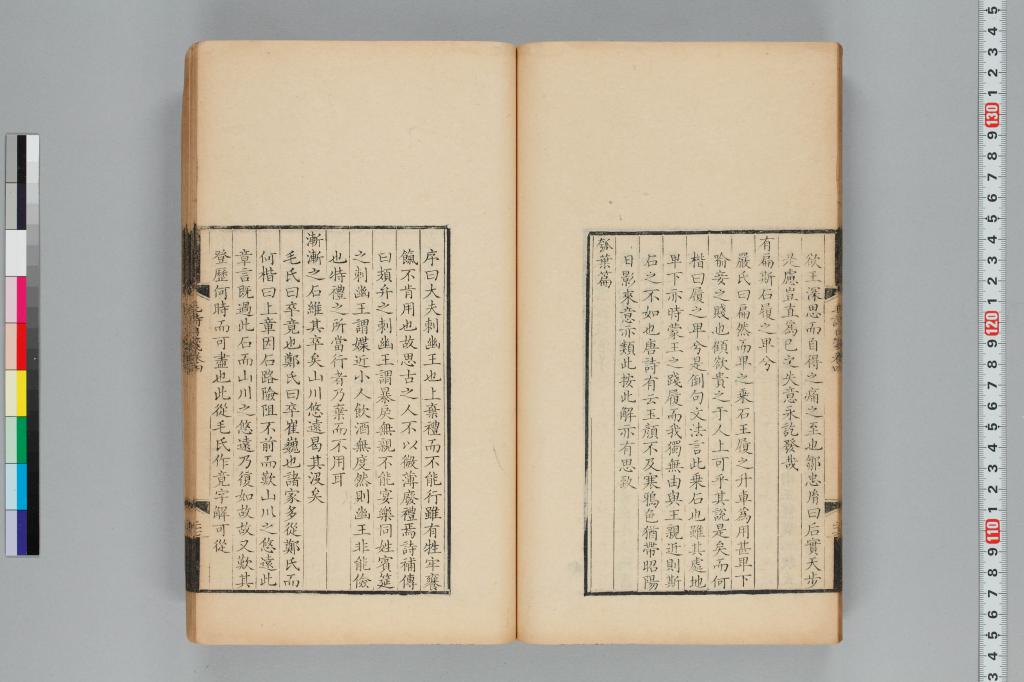 欲王深思而自得之痛之至也鄒忠胤曰后實天步
是慮豈直為已之失意永託發哉
有扁斯石履之卑兮
嚴氏曰扁然而卑之乘石王履之升車為用甚卑下
喻妾之賤也顧欲貴之于人上可乎其說是矣而何
楷曰履之卑兮是倒句文法言此乘石也雖其處地
卑下亦時蒙王之踐履而我獨無由與王親近則斯
石之不如也唐詩有云玉顏不及寒鴉色猶帶昭陽
日影來意亦類此按此解亦有思致
瓠葉篇
序曰大夫刺幽王也上棄禮而不能行雖有牲牢饔
餼不肯用也故思古之人不以微薄廢禮焉詩補傳
曰頍弁之刺幽王謂暴戾無親不能宴樂同姓賓筵
之刺幽王謂媟近小人飲酒無度然則幽王非能儉
也特禮之所當行者乃棄而不用耳
漸漸之石維其卒矣山川悠遠曷其沒矣
毛氏曰卒竟也鄭氏曰卒崔巍也諸家多從鄭氏而
何楷曰上章因石路險阻不前而歎山川之悠遠此
章言既過此石而山川之悠遠乃復如故故又歎其
登歷何時而可盡也此從毛氏作竟字解可從